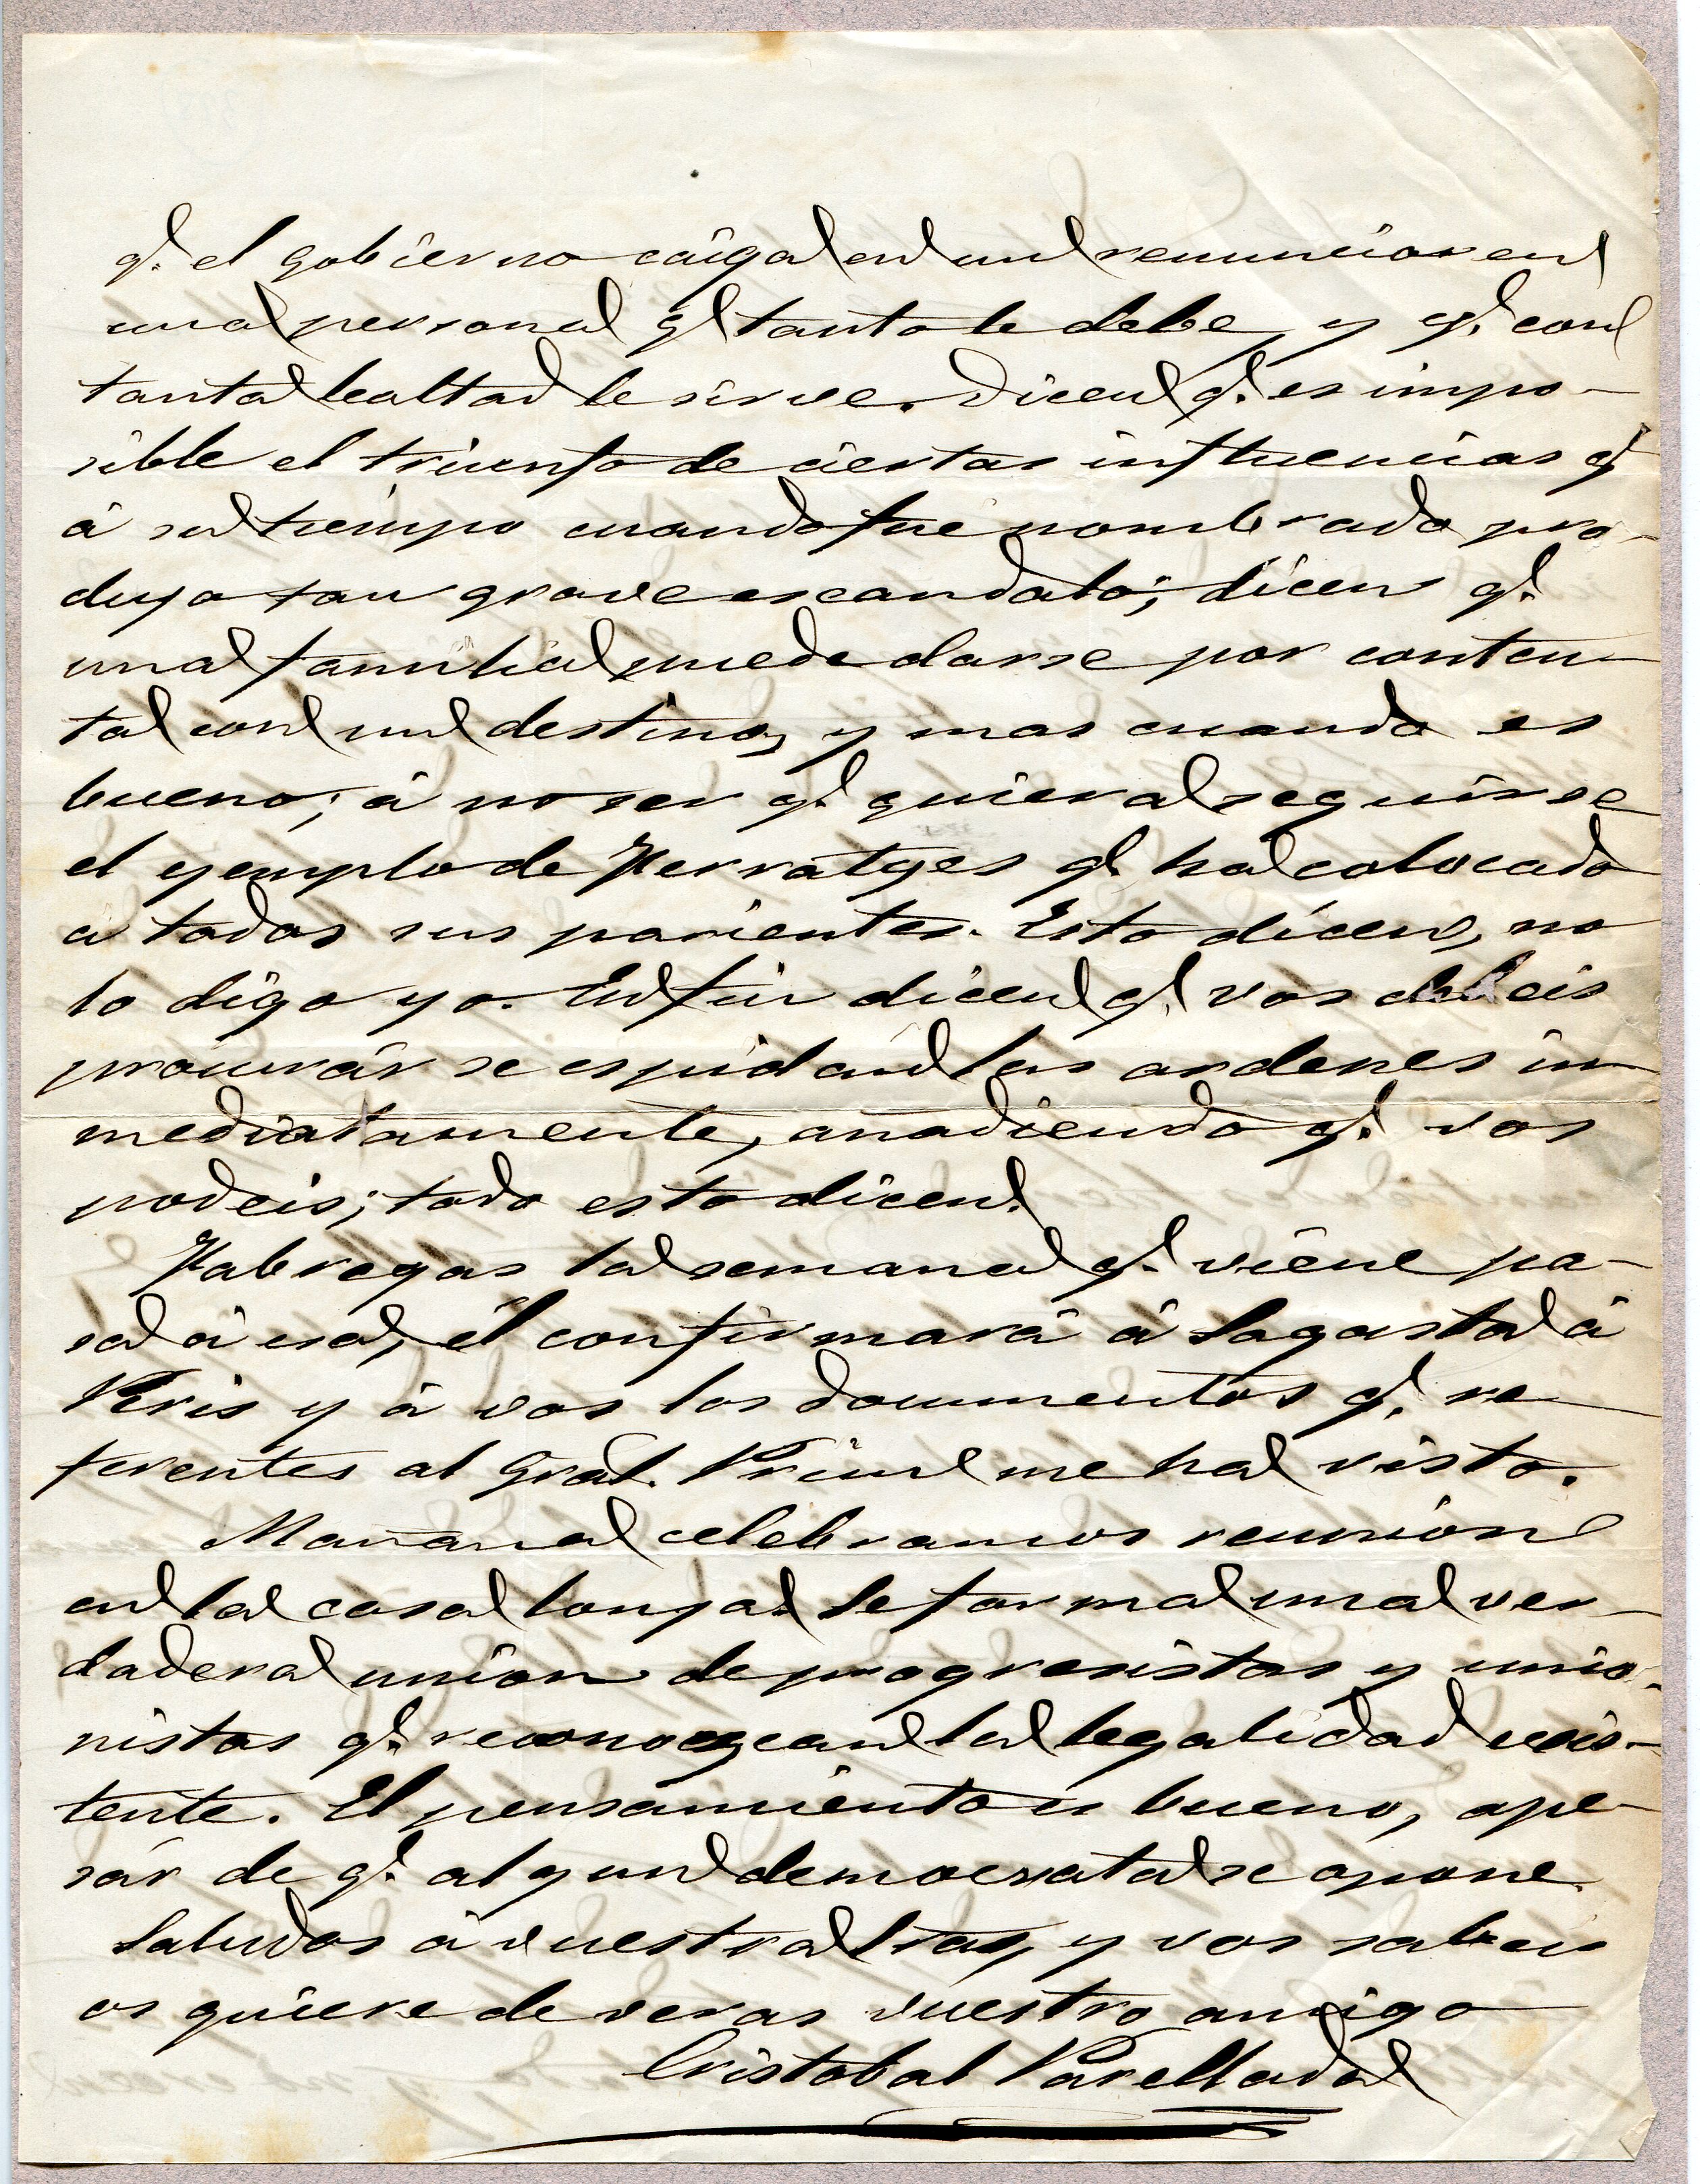 q.e el gobierno caiga en un renuncio en
una persona q.e tanto le debe, y q.e con
tanta lealtad le sirve. Dicen q.e es impo-
sible el triunfo de ciertas influencias q.e
á su tiempo cuando fué nombrado pro-
dujo tan grave escandalo; dicen q.e
una familia puede darse por conten-
ta con un destino, y mas cuando es
bueno; á no ser q.e quiera seguirse
el ejemplo de Ferratges q.e ha colocado
á todos sus parientes. Esto dicen, no
lo digo yo. En fin dicen q.e vos debeis
procurár se espidan las ordenes in-
mediatamente, añadiendo q.e vos
podeis; todo esto dicen.
Fabregas la semana q.e viene pa-
sa á esa, él confirmará á Sagasta á
Peris y á vos los documentos q.e re-
ferentes al Gral. Prim me ha visto.
Mañana celebramos reunion
en la casa lonja. Se forma una ver-
dadera union de progresistas y unio-
nistas q.e reconozcan la legalidad ecsis-
tente. El pensamiento es bueno, ape-
sár de q.e algun democrata se opone.
Saludos á vuestra y vos sabeis
os quiere de veras vuestro amigo
Cristobal Parellada